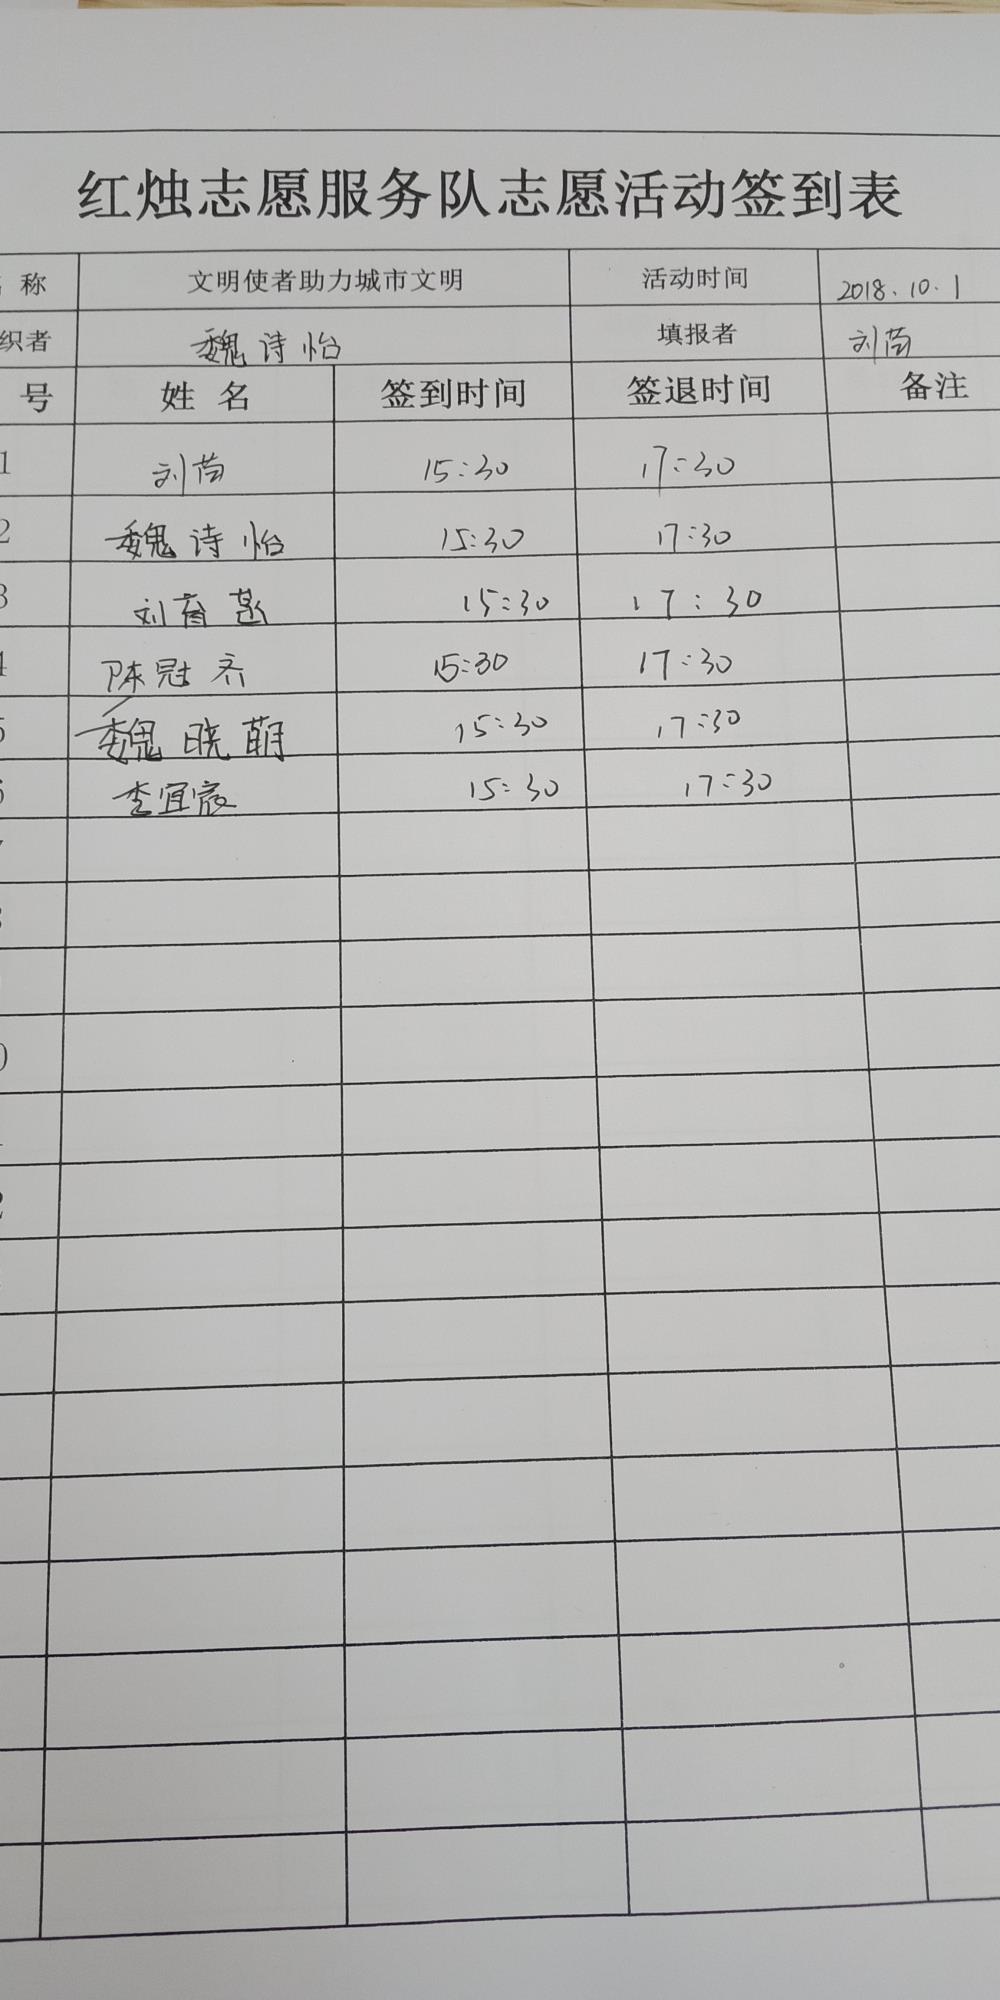 红烛志愿服务队志愿活动签到表
称 文明使者助力城市文明 活动时间 2018.10.1
织者 魏诗怡 填报者 刘茵
号 姓名 签到时间 签退时间 备注
1 刘茵 15:30 17:30
2 魏诗怡 15:30 17:30
3 刘育 15:30 17:30
4 陈冠齐 15:30 17:30
5 魏晓萌 15:30 17:30
6 李宜霖 15:30 17:30